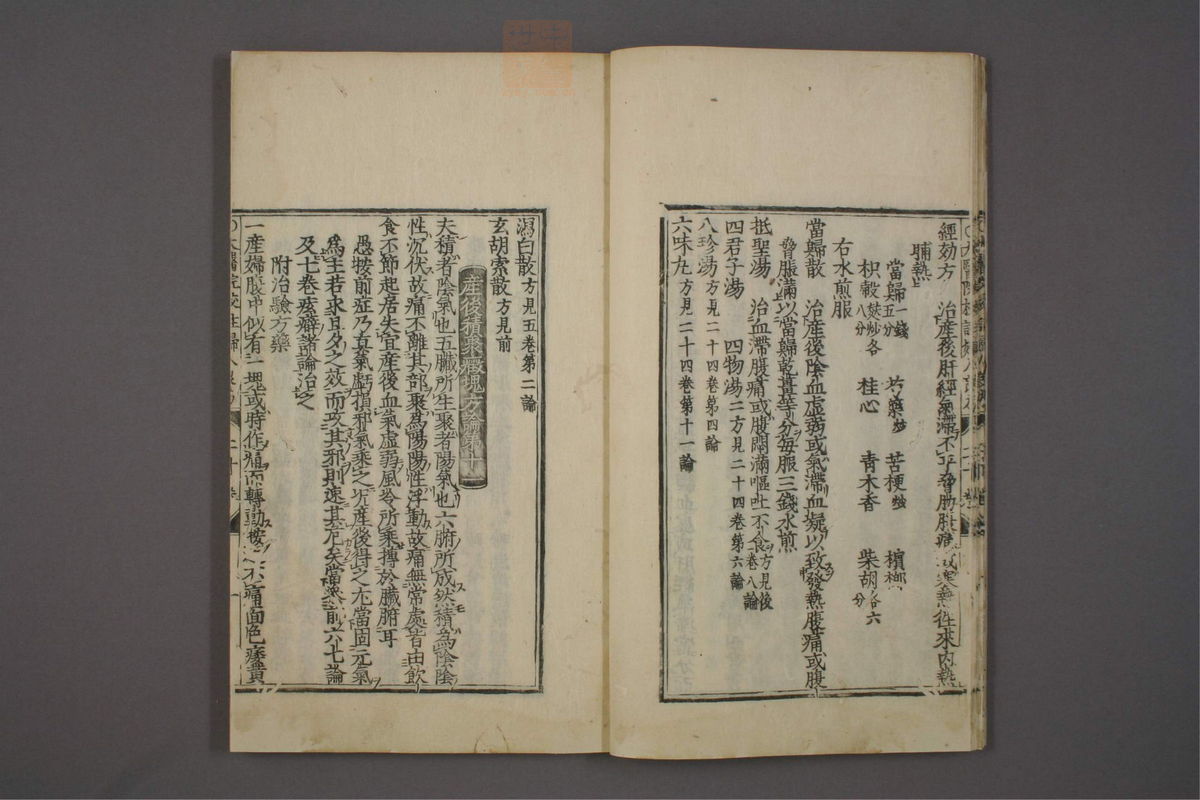 經効方 治產後肝經氣滯不平脅肋脹痛或寒熱往來內熱
晡熱
當歸一錢五分 芍藥炒 苦梗炒 檳榔
枳殼麩炒各八分 桂心 青木香 柴胡各六分
右水煎服
當歸散 治產後陰血虛弱或氣滯血凝以致發熱腹痛或腹
脅脹滿以當歸乾薑等分每服三錢水煎
抵聖湯 治血滯腹痛或腹悶滿嘔吐不食方見後卷八論
四君子湯 四物湯二方見二十四卷第六論
八珍湯方見二十四卷第四論
六味丸方見二十四卷第十一論
瀉白散方見五卷第二論
玄胡索散方見前
產後積聚癥塊方論第十
夫積者陰氣也五臟所生聚者陽氣也六腑所成然積為陰陰
性沉伏故痛不離其部聚為陽陽性浮動故痛無常處皆由飲
食不節起居失宜產後血氣虛弱風冷所乘搏於臟腑耳
愚按前症乃真氣虧損邪氣乘之况產後得之尤當固元氣
為主若求旦夕之效而攻其邪則速其危矣當參前六七論
及七卷痃癖諸論治之
附治驗方藥
一產婦腹中似有一塊或時作痛而轉動按之不痛面色痿黃